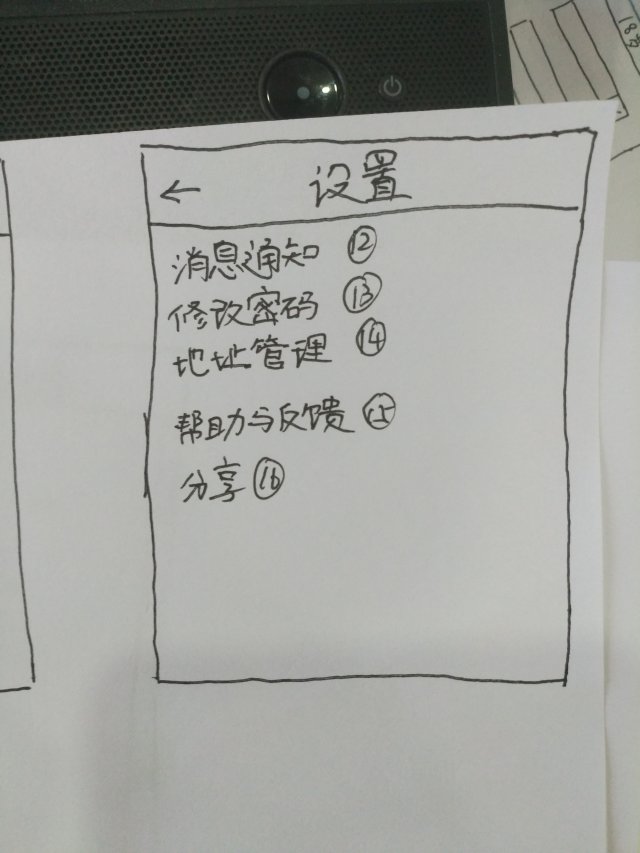 ← 设置
消息通知 ⑫
修改密码 ⑬
地址管理 ⑭
帮助与反馈 ⑮
分享 ⑯